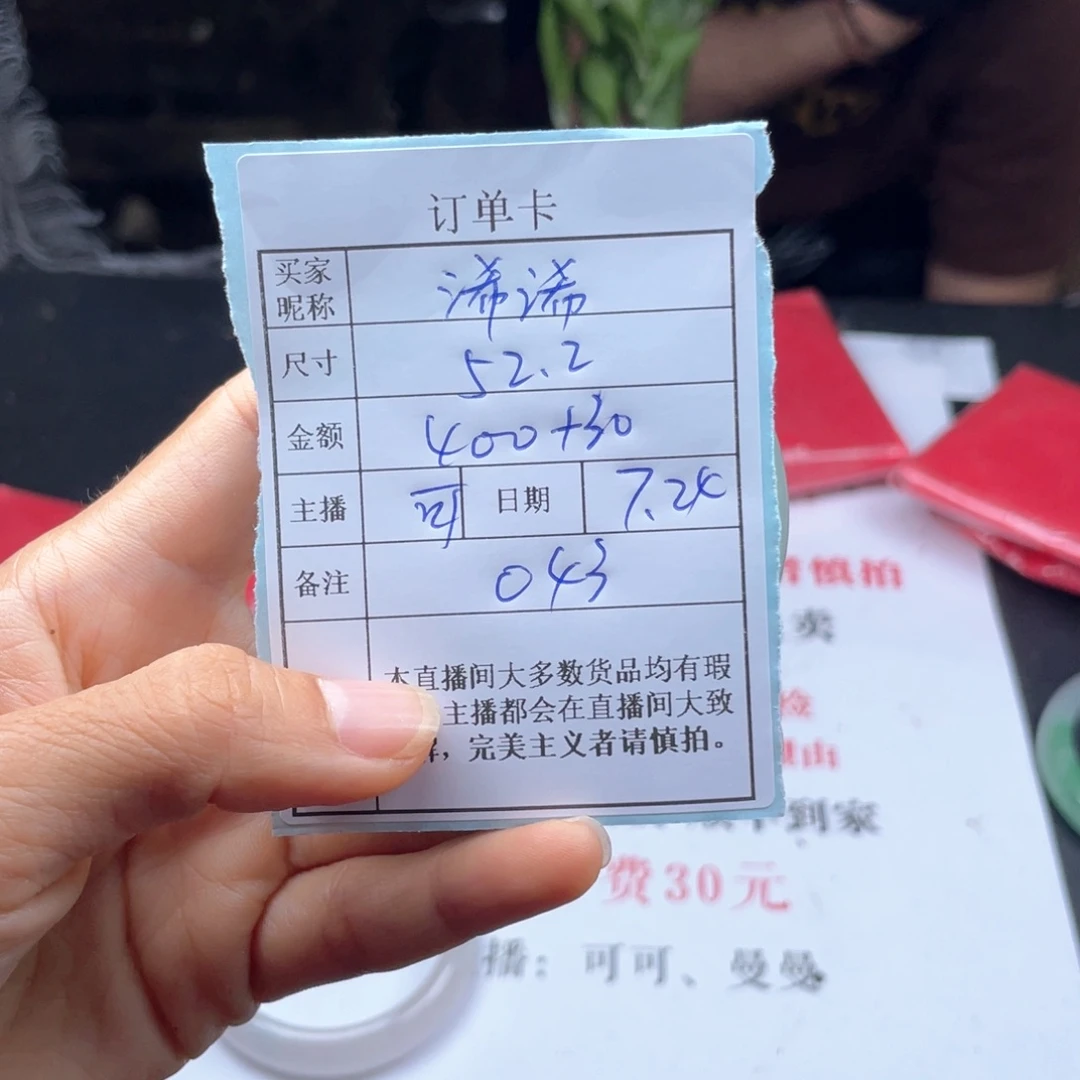 订单卡
买家昵称 浠浠
尺寸 52.2
金额 400+30
主播 可 日期 7.24
备注 043
本直播间大多数货品均有瑕
主播都会在直播间大致
解，完美主义者请慎拍。
慎拍
卖
到家
费30元
播：可可、曼曼